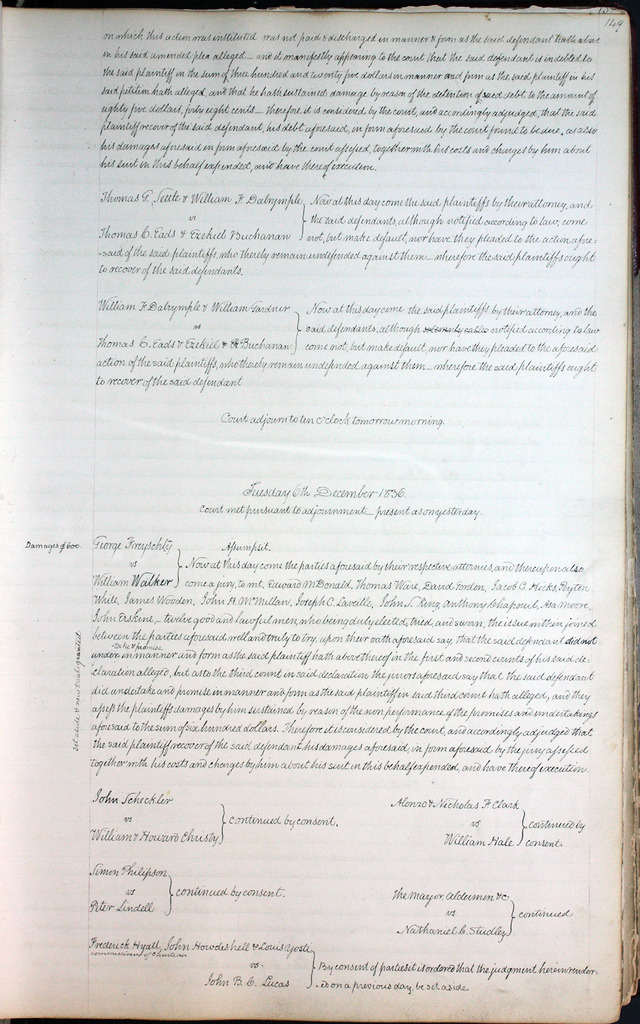 149
on which this action was instituted was not paid & discharged in manner & form as the said defendant hath above
in his said amended plea alleged – and it manifestly appearing to the court that the said defendant is indebted to
the said plaintiff in the sum of three hundred and twenty five dollars in manner and form as the said plaintiff in his
said petition hath alleged, and that he hath sustained damage by reason of the detention of said debt to the amount of
eighty five dollars, forty eight cents – therefore it is considered by the court, and accordingly adjudged, that the said
plaintiff recover of the said defendant, his debt aforesaid, in form aforesaid by the court found to be due, as also
his damages aforesaid in form aforesaid by the court assessed, together with his costs and charges by him about
his suit in this behalf expended, and have thereof execution.
Thomas G. Settle & William F. Dalrymple
vs
Thomas C. Eads & Ezekiel Buchanan
Now at this day come the said plaintiffs by their attorney, and
the said defendants, although notified according to law, come
not, but make default, nor have they pleaded to the action afore-
-said of the said plaintiff, who thereby remain undefended against them – wherefore the said plaintiffs ought
to recover of the said defendants.
William F. Dalrymple & William Gardner
vs
Thomas C. Eads & Ezekiel Buchanan
Now at this day come the said plaintiffs by their attorney, and the
said defendants, although solemnly called notified according to law
come not, but make default, nor have they pleaded to the aforesaid
action of the said plaintiffs, who thereby remain undefended against them – wherefore the said plaintiffs ought
to recover of the said defendant
Court adjourn to ten o'clock tomorrow morning.
Tuesday 6th December 1836.
Court met pursuant to adjournment – present as on yesterday.
Damages $600.
George Freyschlty
vs
William Walker
Assumpsit.
Now at this day come the parties aforesaid by their respective attornies, and thereupon also
come a jury, to wit, Edward McDonald, Thomas Ware, David Fordon, Jacob C. Hicks, Bryten
White, James Wooden, John H. McMillan, Joseph C. Laveille, John S. King, Anthony Chapouil, Asa Moore,
John Erskine – twelve good and lawful men, who being duly elected, tried, and sworn, the issue within joined
between the parties aforesaid well and truly to try, upon their oath aforesaid say, that the said defendant did not
take & promise
under in manner and form as the said plaintiff hath above thereof in the first and second counts of his said de-
claration alleged, but as to the third count in said declaration the jurors aforesaid say that the said defendant
did undertake and promise in manner and form as the said plaintiff in said third count hath alleged, and they
assess the plaintiffs damages by him sustained by reason of the non performance of the promises and undertakings
aforesaid to the sum of six hundred dollars. Therefore it is considered by the court, and accordingly adjudged that
the said plaintiff recover of the said defendant his damages aforesaid, in form aforesaid by the jury assessed
together with his costs and charges by him about his suit in this behalf expended, and have thereof execution.
Set aside & new trial granted.
John Scheckler
vs
William & Howard Christy
continued by consent.
Alonzo & Nicholas F. Clark
vs
William Hale
continued by
consent.
Simon Philipson
vs
Peter Lindell
continued by consent.
The Mayor, Aldermen &c
vs
Nathaniel C. Studley
continued
Frederick Hyatt, John Howdeshell & Louis Yosti
commissioners of
vs.
John B. C. Lucas
By consent of parties it is ordered that the judgment herein render-
-ed on a previous day, be set aside.